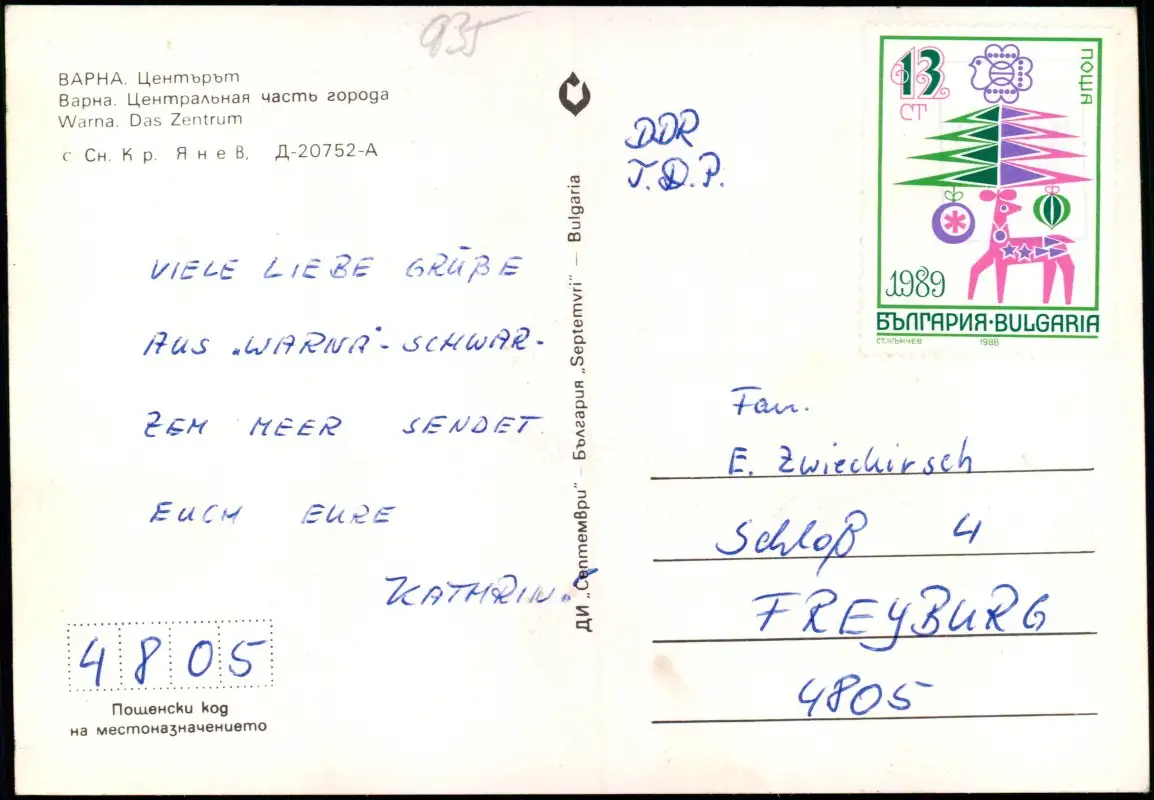 935
ВАРНА. Центърът
Варна. Центральная часть города
Warna. Das Zentrum
с Сн. Кр. Янев, Д-20752-А
VIELE LIEBE GRÜßE
AUS „WARNA"- SCHWAR-
ZEM MEER SENDET
EUCH EURE
KATHRIN.
4805
Пощенски код
на местоназначението
ДИ „Септември" – България „Septemvri" — Bulgaria
DDR
Г.D.P.
13
СТ
ПОЩА
1989
БЪЛГАРИЯ·BULGARIA
СТ. КЪНЧЕВ 1988
Fam.
E. Zwieckirsch
Schloß 4
FREYBURG
4805